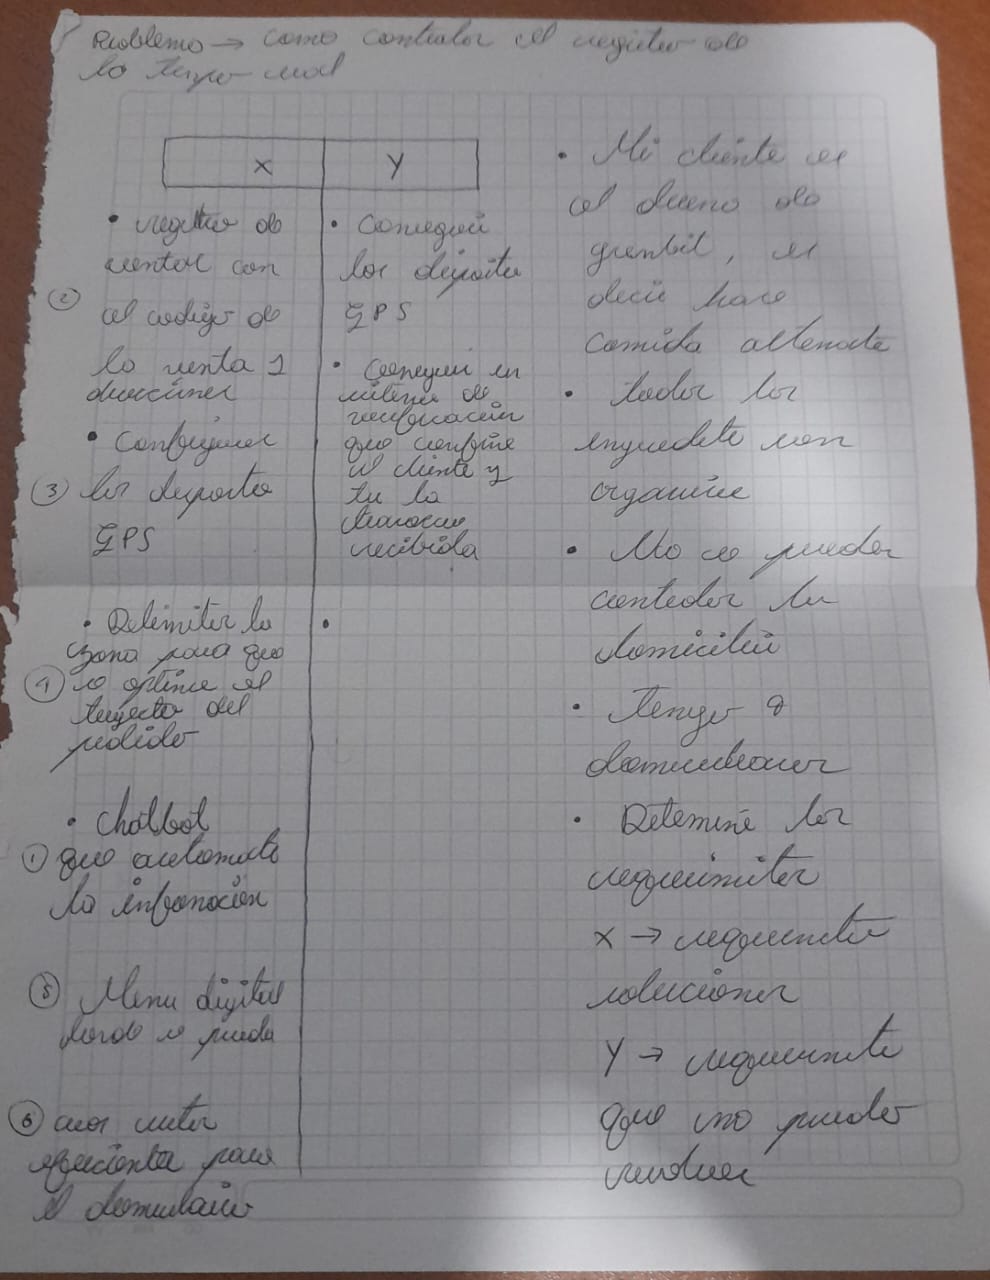 Problema → como controlar el registro de
lo tengo mal
X
Y
• registro de
ventas con
② el codigo de
la venta y
direcciones
• Configurar
③ los dispositivo
GPS
• Delimitar la
zona para que
④ se optime el
trayecto del
pedido
• Chatbot
① que automate
la información
⑤ Menu digital
donde se pueda
⑥ crear rutas
eficientes para
el domiciliario
• Conseguir
los dispositivo
GPS
• Conseguir un
sistema de
verificación
que confirme
el cliente y
la
recibida
•
• Mi cliente es
el dueno de
es
decir hace
comida
• todos los
ingredientes son
organicos
• No se pueden
controlar los
domicilios
• Tengo 8
domiciliarios
• Determine los
requerimientos
X → requerimientos
soluciones
Y → requerimientos
que no puedo
resolver